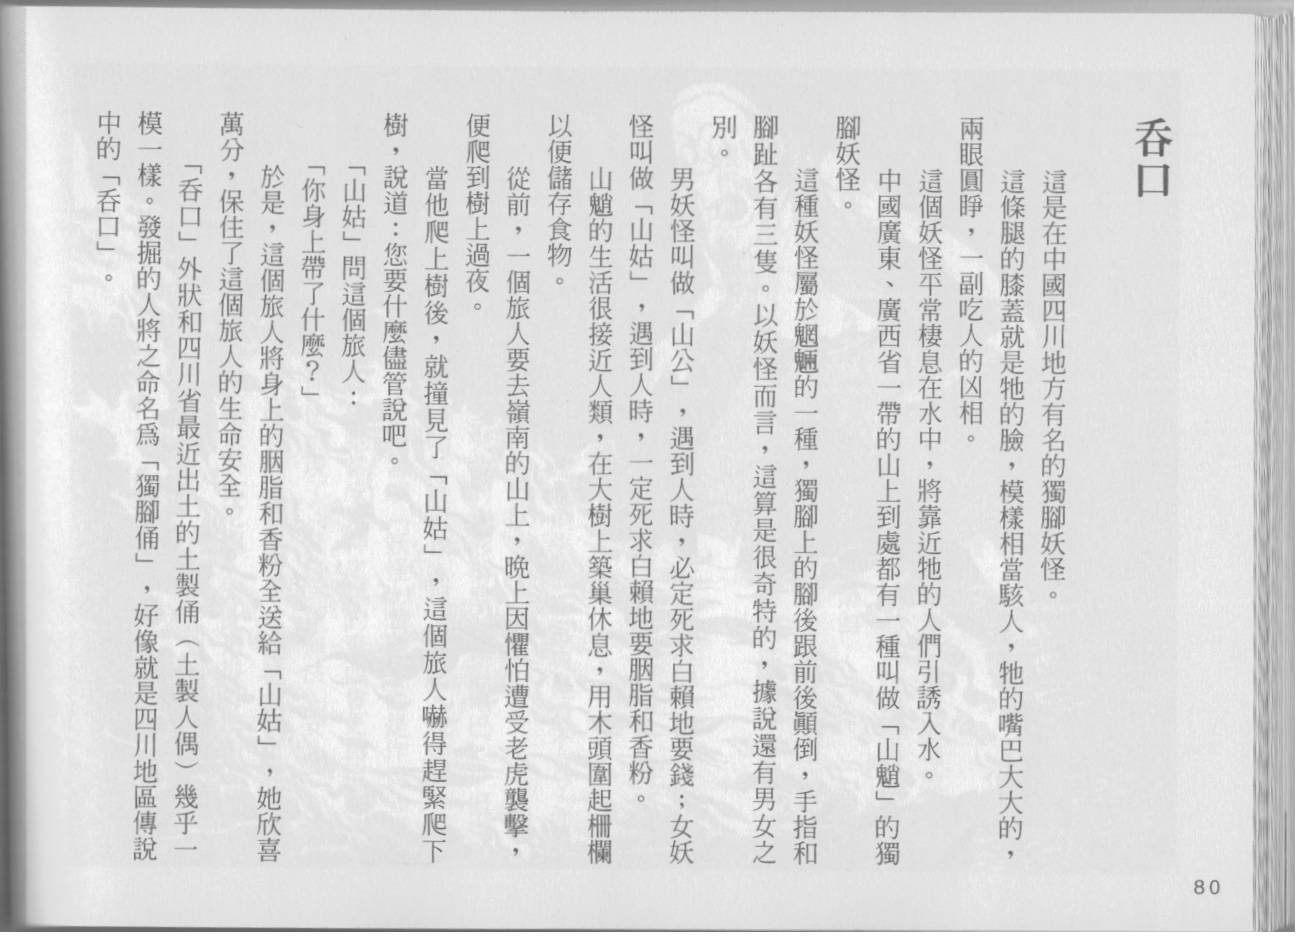 吞口
這是在中國四川地方有名的獨腳妖怪。
這條腿的膝蓋就是牠的臉，模樣相當駭人，牠的嘴巴大大的，
兩眼圓睜，一副吃人的凶相。
這個妖怪平常棲息在水中，將靠近牠的人們引誘入水。
中國廣東、廣西省一帶的山上到處都有一種叫做「山魈」的獨
腳妖怪。
這種妖怪屬於魍魎的一種，獨腳上的腳後跟前後顚倒，手指和
腳趾各有三隻。以妖怪而言，這算是很奇特的，據說還有男女之
別。
男妖怪叫做「山公」，遇到人時，必定死求白賴地要錢；女妖
怪叫做「山姑」，遇到人時，一定死求白賴地要胭脂和香粉。
山魈的生活很接近人類，在大樹上築巢休息，用木頭圍起柵欄
以便儲存食物。
從前，一個旅人要去嶺南的山上，晚上因懼怕遭受老虎襲擊，
便爬到樹上過夜。
當他爬上樹後，就撞見了「山姑」，這個旅人嚇得趕緊爬下
樹，說道：您要什麼儘管說吧。
「山姑」問這個旅人：
「你身上帶了什麼？」
於是，這個旅人將身上的胭脂和香粉全送給「山姑」，她欣喜
萬分，保住了這個旅人的生命安全。
「吞口」外狀和四川省最近出土的土製俑（土製人偶）幾乎一
模一樣。發掘的人將之命名爲「獨腳俑」，好像就是四川地區傳說
中的「吞口」。
80